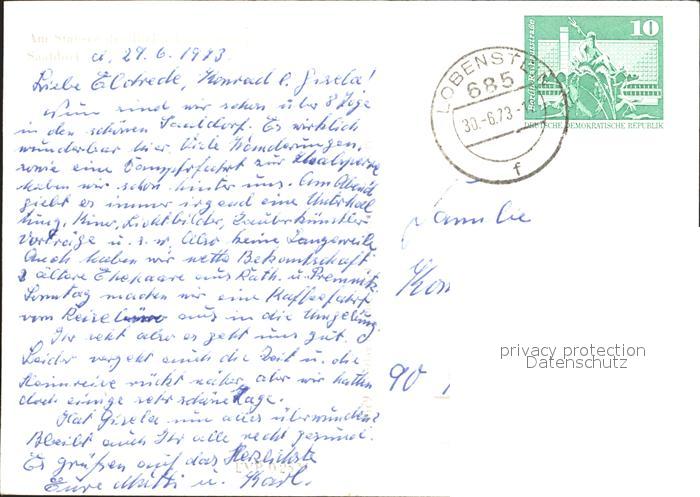 d. 29.6.1973.
Liebe Eldtrede, Konrad u. Gisela!
Nun sind wir schon über 8 Tage
in den schönen Saaldorf. Es wirklich
wunderbar hier. Viele Wanderungen,
sowie eine Dampferfahrt zur Thalsperre
haben wir schon hinter uns. Am Abend
giebt es immer irgend eine Unterhal
tung, Kino, Lichtbilder, Zauberkünstler
Vorträge u.s.w. Also keine Langeweile
Auch haben wir nette Bekantschaft
2 ältere Ehepaare aus Rath. u. Premnitz.
Sonntag machen wir eine Kaffeefahrt
vom Reisebüro aus in die Umgebung.
Ihr seht also es geht uns gut.
Leider vergeht auch die Zeit u. die
Heimreise rückt näher, aber wir hatten
doch einige sehr schöne Tage.
Hat Gisela nun alles überwunden?
Bleibt auch Ihr alle recht gesund.
Es grüßen auf das Herzlichste
Eure Mutti u. Karl.
10
DEUTSCHE DEMOKRATISCHE REPUBLIK
LOBENSTEIN
685
30.-6.73-
f
Familie
Kon
90
privacy protection
Datenschutz